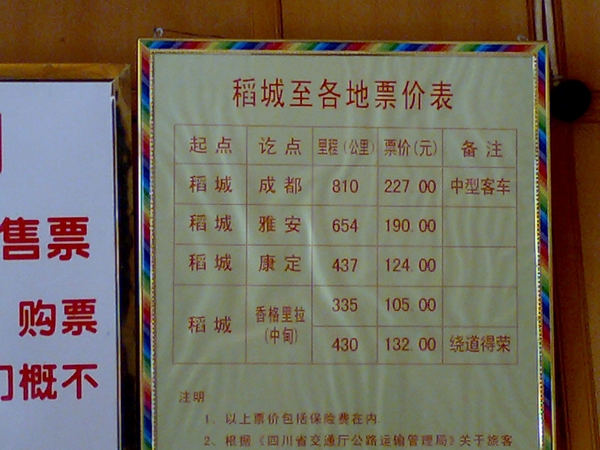 售票
购票
概不
稻城至各地票价表
起点 讫点 里程（公里） 票价（元） 备注
稻城 成都 810 227.00 中型客车
稻城 雅安 654 190.00
稻城 康定 437 124.00
稻城 香格里拉（中甸） 335 105.00
430 132.00 绕道得荣
注明
1、以上票价包括保险费在内.
2、根据《四川省交通厅公路运输管理局》关于旅客